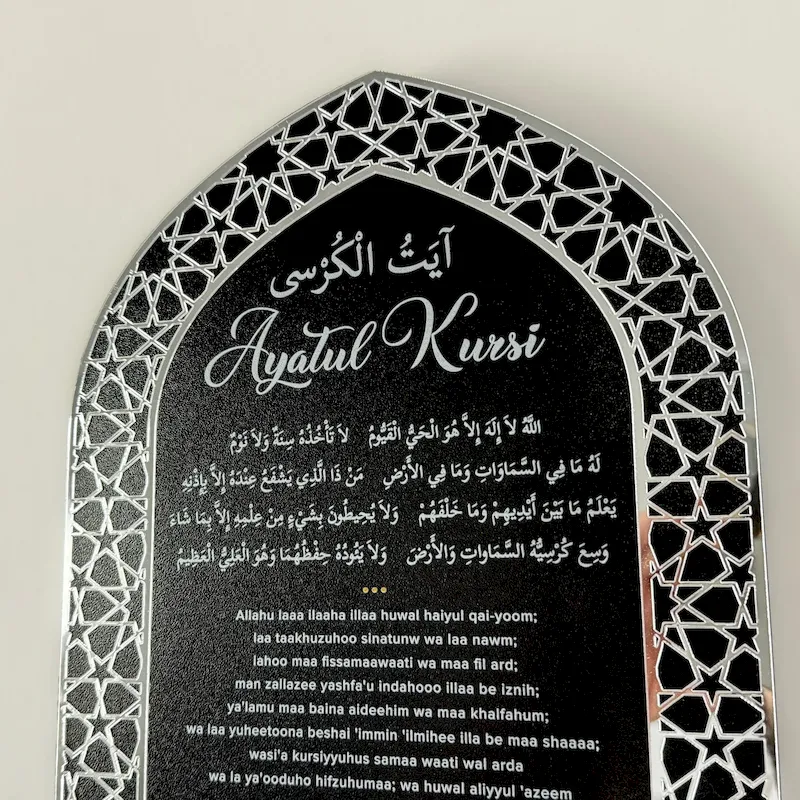 آيَتُ الْكُرْسِى
Ayatul Kursi
اللَّهُ لاَ إِلَهَ إِلاَّ هُوَ الْحَيُّ الْقَيُّومُ لاَ تَأْخُذُهُ سِنَةٌ وَلاَ نَوْمٌ
لَهُ مَا فِي السَّمَاوَاتِ وَمَا فِي الأَرْضِ مَنْ ذَا الَّذِي يَشْفَعُ عِنْدَهُ إِلاَّ بِإِذْنِهِ
يَعْلَمُ مَا بَيْنَ أَيْدِيهِمْ وَمَا خَلْفَهُمْ وَلاَ يُحِيطُونَ بِشَيْءٍ مِنْ عِلْمِهِ إِلاَّ بِمَا شَاءَ
وَسِعَ كُرْسِيُّهُ السَّمَاواتِ وَالأَرْضَ وَلاَ يَئُودُهُ حِفْظُهُمَا وَهُوَ الْعَلِيُّ الْعَظِيمُ
Allahu laaa ilaaha illaa huwal haiyul qai-yoom;
laa taakhuzuhoo sinatunw wa laa nawm;
lahoo maa fissamaawaati wa maa fil ard;
man zallazee yashfa'u indahooo illaa be iznih;
ya'lamu maa baina aideehim wa maa khalfahum;
wa laa yuheetoona beshai 'immin 'ilmihee illa be maa shaaaa;
wasi'a kursiyyuhus samaa waati wal arda
wa la ya'ooduho hifzuhumaa; wa huwal aliyyul 'azeem